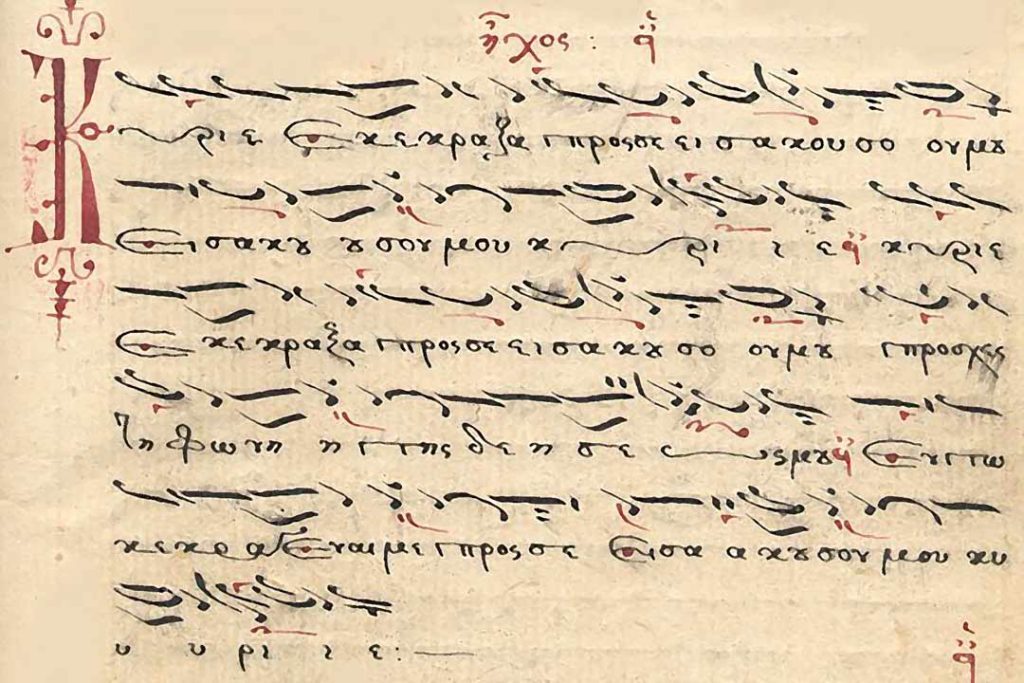 ἦχος: ᾳ
Κύριε Εκεκραξα προςσε εισακουσο ουμου
Εισακου υσουμου κ ρι ι ε κυριε
Εκεκραξα προςσε εισακυσο ουμυ προσχες
τη φωνη η της δε η σε ςμου Εν τω
κεκρα Εναιμε προςσε Εισα ακουσουμου κυ
υ υ ρι ι ε: